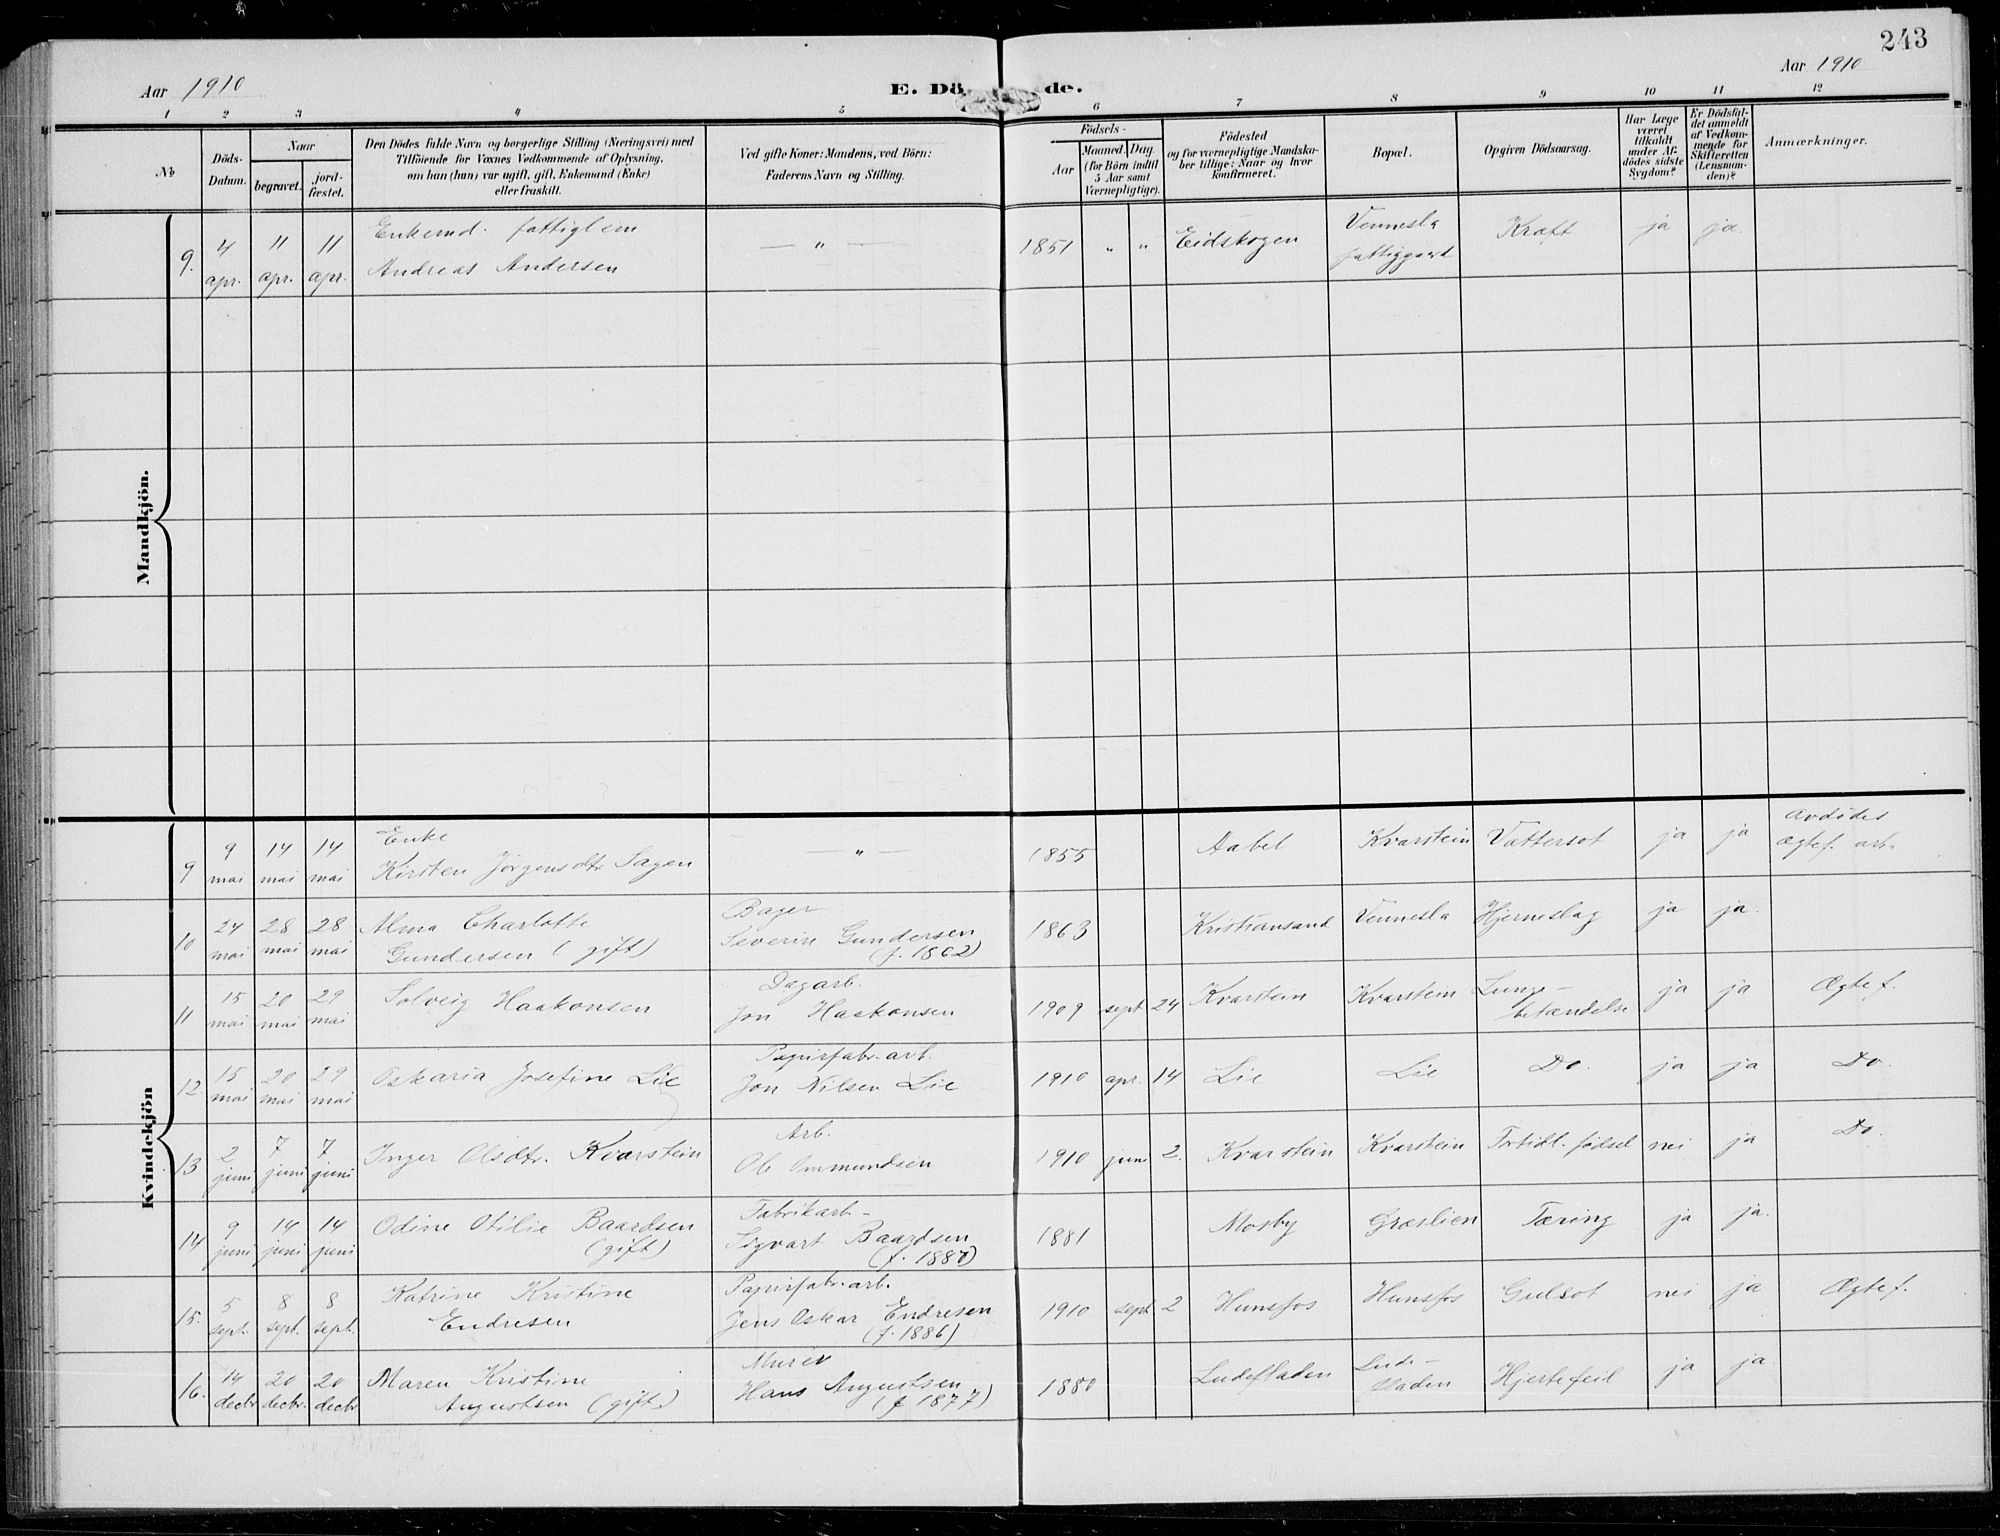 243
Aar 1910
E. Dö de.
Aar 1910
1 2 3 4 5 6 7 8 9 10 11 12
No
Döds-Datum.
Naar
begravet.
jord-fæstet.
Den Dödes fulde Navn og borgerlige Stilling (Næringsvei) med
Tilföiende for Voxnes Vedkommende af Oplysning,
om han (hun) var ugift, gift, Enkemand (Enke)
eller fraskilt.
Ved gifte Koner: Mandens, ved Börn:
Faderens Navn og Stilling.
Födsels-
Aar
Maaned. Dag.
(for Börn indtil
5 Aar samt
Værnepligtige).
Födested
og for værnepligtige Mandska-
ber tillige: Naar og hvor
konfirmeret.
Bopæl.
Opgiven Dödsaarsag.
Har Læge
været
tilkaldt
under Af-
dödes sidste
Sygdom?
Er Dödsfal-
det anmeldt
af Vedkom-
mende for
Skifteretten
(Lensman-
den)?
Anmærkninger.
Mandkjön.
9. 4 apr. 11 apr. 11 apr. Enkemd. fattiglem Andreas Andersen — " — 1851 " " Eidskogen Vennesla fattiggaard Kræft ja ja.
Kvindekjön
9 9 mai 14 mai 14 mai Enke Kirsten Jörgensdtr Sagen — " — 1855 Aabel Kvarstein Vattersot ja ja Avdödes ægtef. arb.
10 24 mai 28 mai 28 mai Alma Charlotte Gundersen (gift) Bager Severin Gundersen (f. 1862) 1863 Kristiansand Vennesla Hjerneslag ja ja.
11 15 mai 20 mai 29 mai Solveig Haakonsen Dagarb. Jon Haakonsen 1909 sept 24 Kvarstein Kvarstein Lunge-betændelse ja ja Ægtef.
12. 15 mai 20 mai 29 mai Oskaria Josefine Lie Papirfabr.arb. Jon Nilsen Lie 1910 apr. 14 Lie Lie Do. ja ja Do.
13 2 juni 7 juni 7 juni Inger Olsdtr. Kvarstein Arb. Ole Ommundsen 1910 juni 2. Kvarstein Kvarstein Fortidl. födsel nei ja Do.
14 9 juni 14 juni 14 juni Odine Otilie Baardsen (gift) Fabrikarb- Sigvart Baardsen (f. 1880) 1881 Mosby Græslien Tæring ja ja.
15. 5 sept. 8 sept. 8 sept. Katrine Kristine Endresen Papirfabr.arb. Jens Oskar Endresen (f. 1886) 1910 sept 2 Hunsfos Hunsfos Gulsot nei ja Ægtef.
16. 14 decbr 20 decbr. 20 decbr Maren Kristine Augustsen (gift) Murer Hans Augustsen (f 1877) 1880 Ludefladen Lude-fladen Hjertefeil ja ja